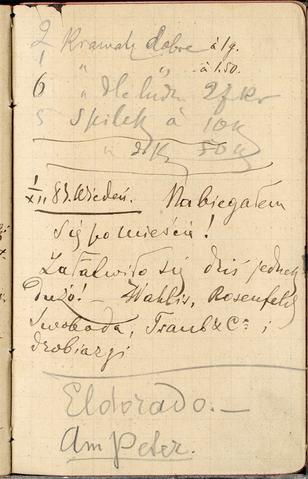 2 Krawaty dobre à 1g.
1 " " à 1.50.
6 " dla ludu 2 fl kr
5 Spilek à 10 k
" 50 k
1/XII 83. Wiedeń. Nabiegałem
się po mieście!
Załatwiło się dziś jednak
dużo! — Wahlis, Rosenfeld,
Swoboda, Traub & Co i
drobiazgi
Eldorado. —
Am Peter.